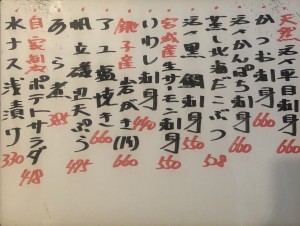 天然活〆平目刺身 660
かつお刺身 660
活〆かんぱち刺身 660
蒸し北海だこぶつ 528
活〆黒鯛刺身 550
宮城産生サーモン刺身 550
いわし刺身 440
銚子産岩がき 660
アユ塩焼き 660
帆立磯辺天ぷら 495
あら煮 385
自家製ポテトサラダ 418
水ナス浅漬け 330